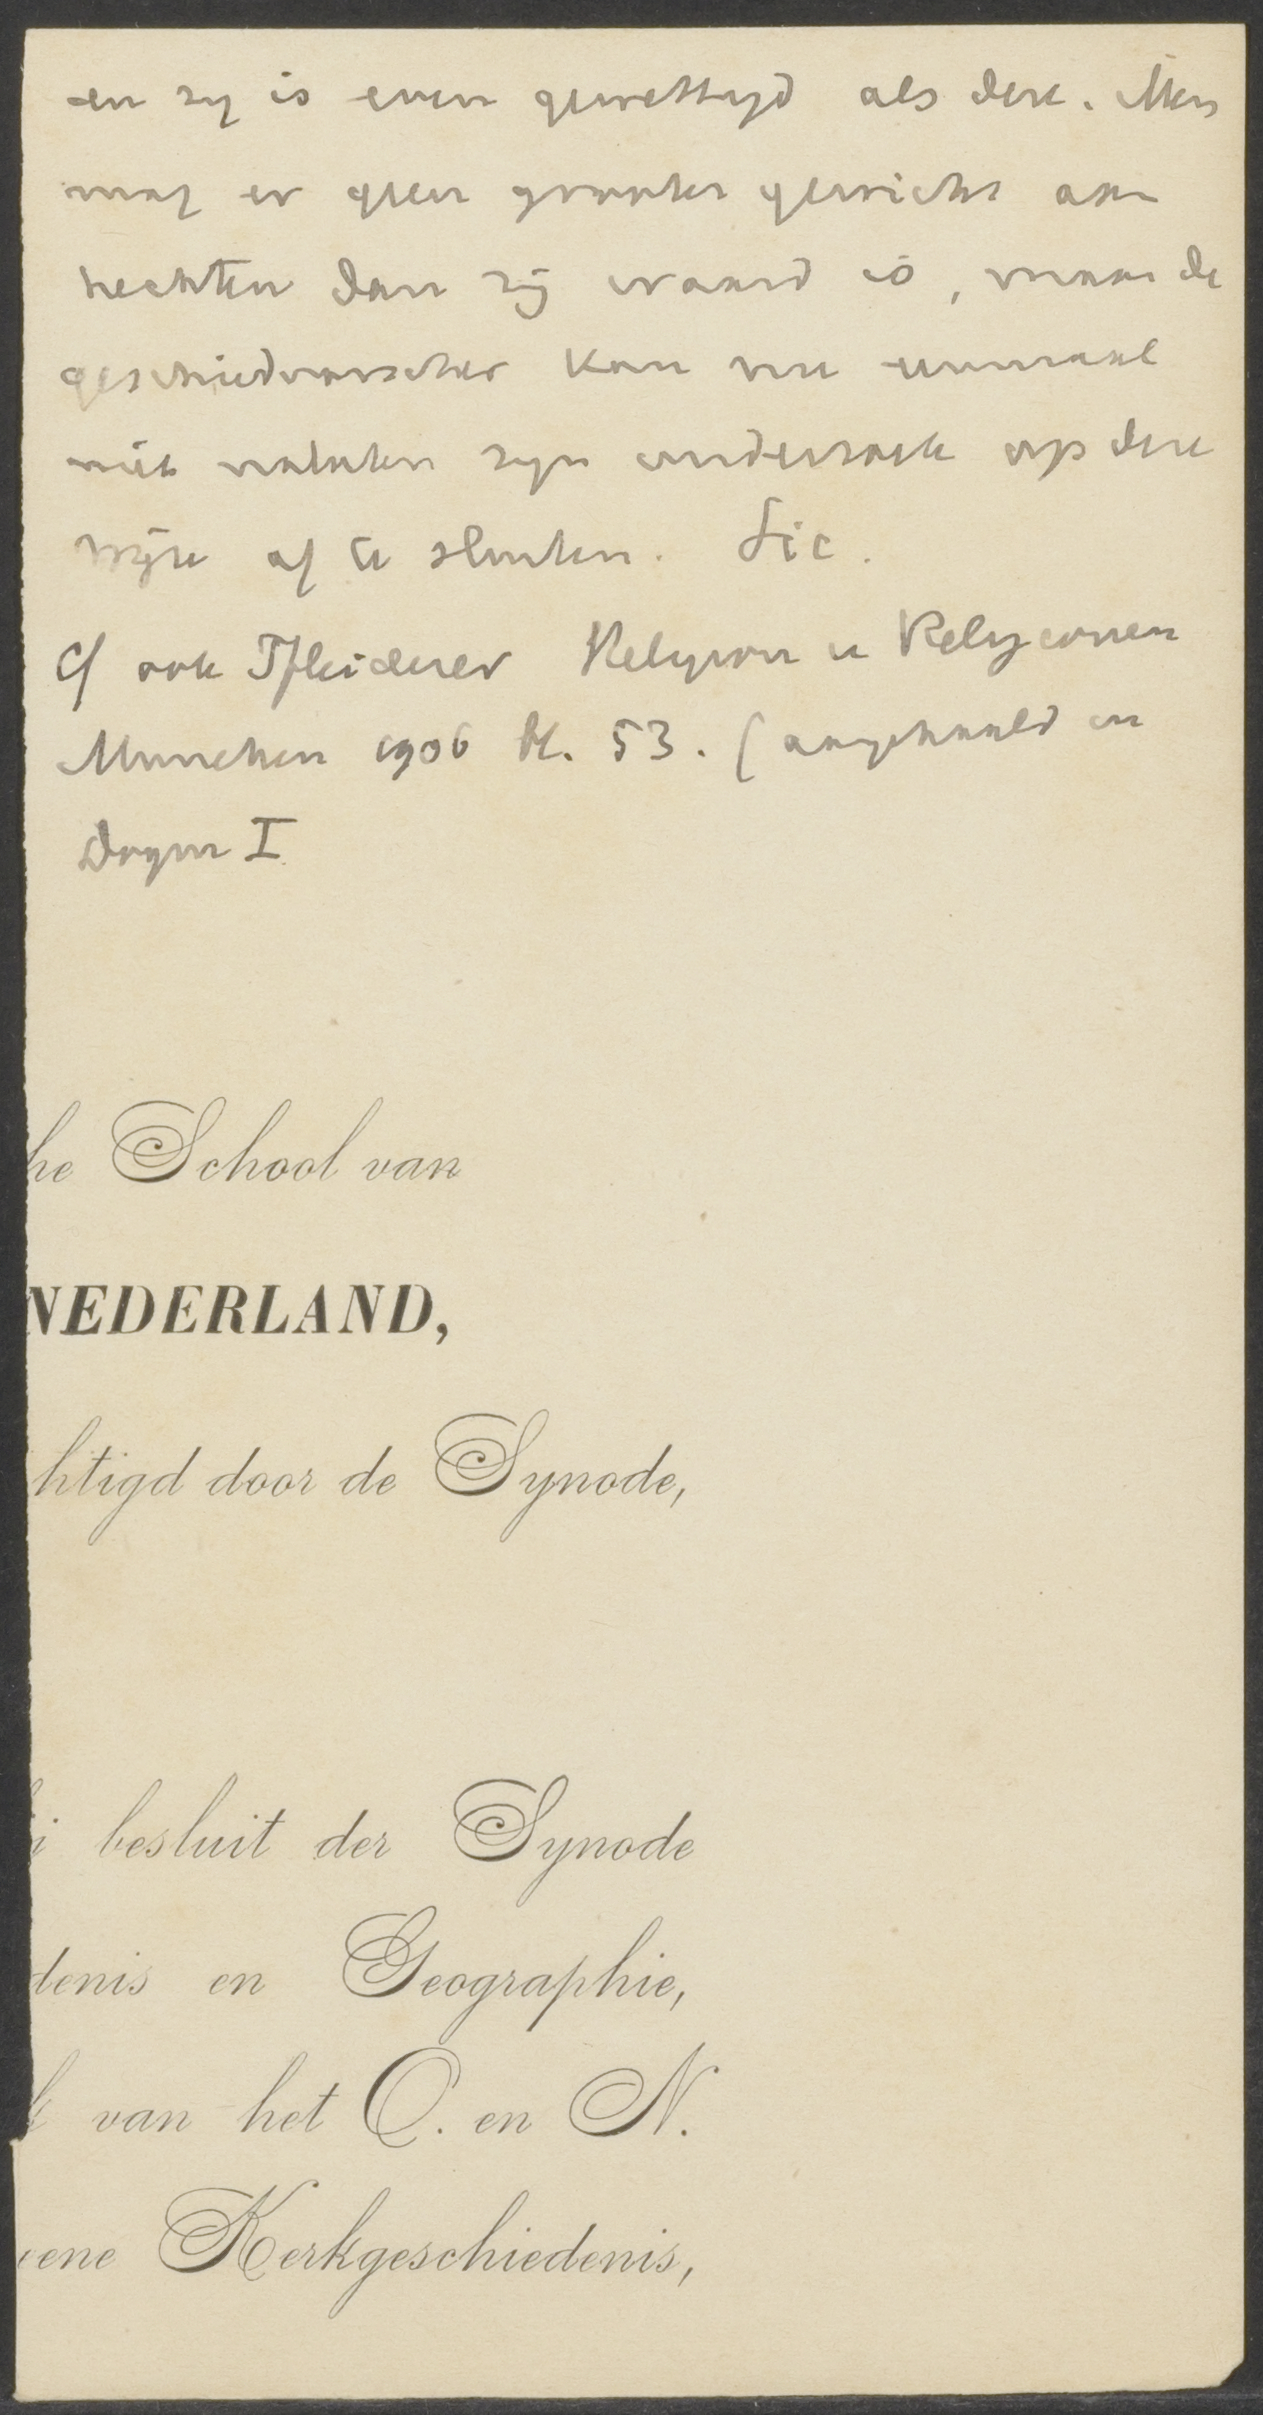 en zy is even gewettigd als deze. Men
mag er geen grooter gewicht aan
hechten dan zij waard is, maar de
geschiedvorscher kan nu eenmaal
niet nalaten zyn onderzoek op deze
wijze af te sluiten. Sic.
Cf ook Pfleiderer Religion u Religionen
Munchen 1906 bl. 53. (aangehaald in
Dogm I
he School van
NEDERLAND,
htigd door de Synode,
i besluit der Synode
denis en Geographie,
k van het O. en N.
ene Kerkgeschiedenis,